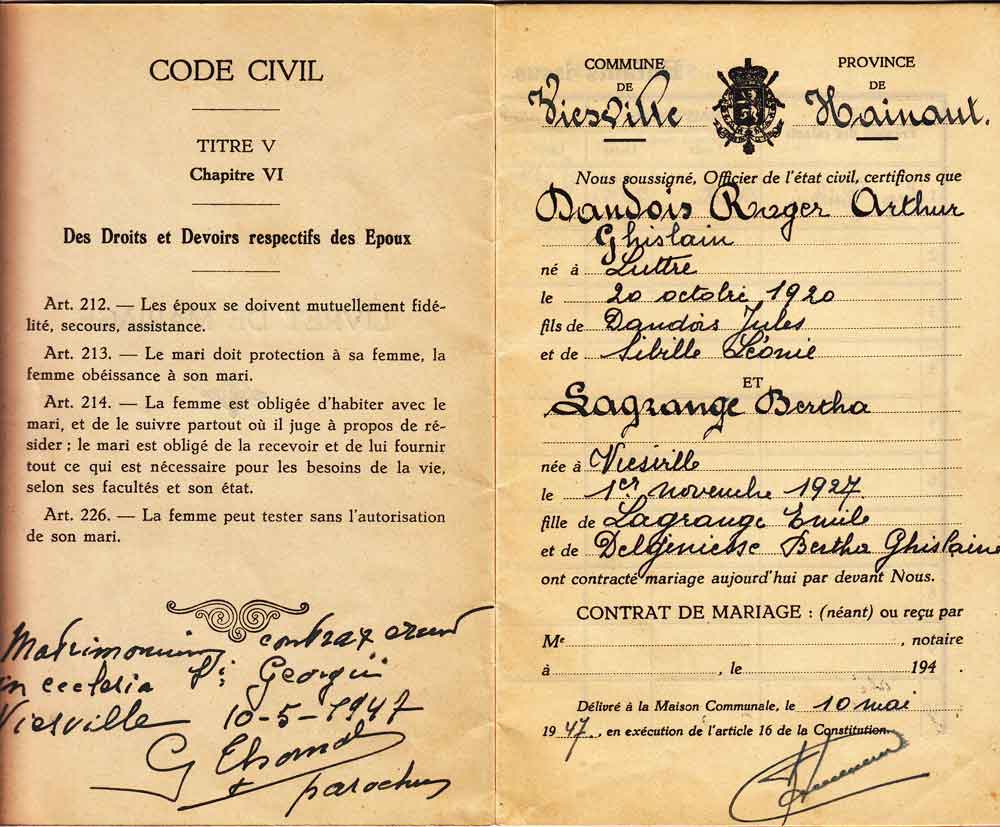 CODE CIVIL
TITRE V
Chapitre VI
Des Droits et Devoirs respectifs des Epoux
Art. 212. — Les époux se doivent mutuellement fidé-
lité, secours, assistance.
Art. 213. — Le mari doit protection à sa femme, la
femme obéissance à son mari.
Art. 214. — La femme est obligée d'habiter avec le
mari, et de le suivre partout où il juge à propos de ré-
sider ; le mari est obligé de la recevoir et de lui fournir
tout ce qui est nécessaire pour les besoins de la vie,
selon ses facultés et son état.
Art. 226. — La femme peut tester sans l'autorisation
de son mari.
Matrimonium contraxerunt
in ecclesia Sti Georgii
Viesville 10-5-1947
parochus
COMMUNE
DE
Viesville
PROVINCE
DE
Hainaut.
Nous soussigné, Officier de l'état civil, certifions que
Dandois Roger Arthur
Ghislain
né à Luttre
le 20 octobre 1920
fils de Dandois Jules
et de Sibille Léonie
ET
Lagrange Bertha
née à Viesville
le 1er novembre 1927
fille de Lagrange Emile
et de Delgeniesse Bertha Ghislaine
ont contracté mariage aujourd'hui par devant Nous.
CONTRAT DE MARIAGE : (néant) ou reçu par
Me , notaire
à , le 194
Délivré à la Maison Communale, le 10 mai
1947., en exécution de l'article 16 de la Constitution.